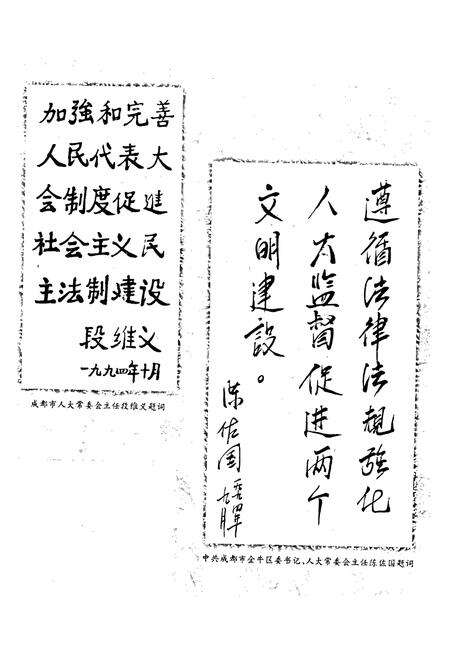 加强和完善
人民代表大
会制度促進
社会主义民
主法制建设
段维义
一九九四年十月
成都市人大常委会主任段维义题词
遵循法律法規強化
人大监督促进两个
文明建設。
陈佐国
中共成都市金牛区委书记、人大常委会主任陈佐国题词